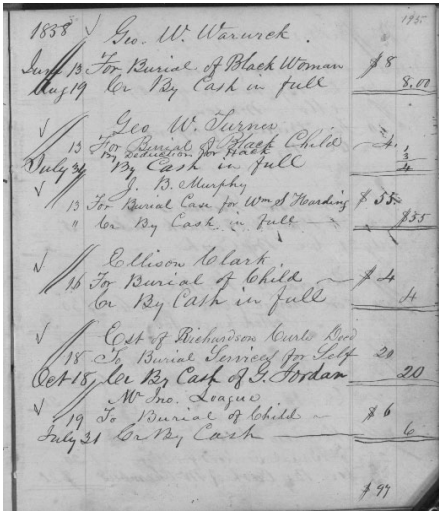 1858 Geo. W. Warwick. 1935
June 13 For Burial of Black Woman $8
Aug 19 Cr By Cash in full 8.00
Geo W. Turner
13 For Burial of Black Child 4
By Deduction for Hack 1
July 31 By Cash in full 3
4
J. B. Murphy
13 For Burial Case for Wm S Harding $55
" Cr By Cash in full $55
Ellison Clark
16 For Burial of Child $4
Cr By Cash in full 4
Est of Richardson Curle Decd
18 To Burial Services for Self 20
Oct 18 Cr By Cash of G. Jordan 20
Mr Jno. Loague
19 To Burial of Child $6
July 31 Cr By Cash 6
$97